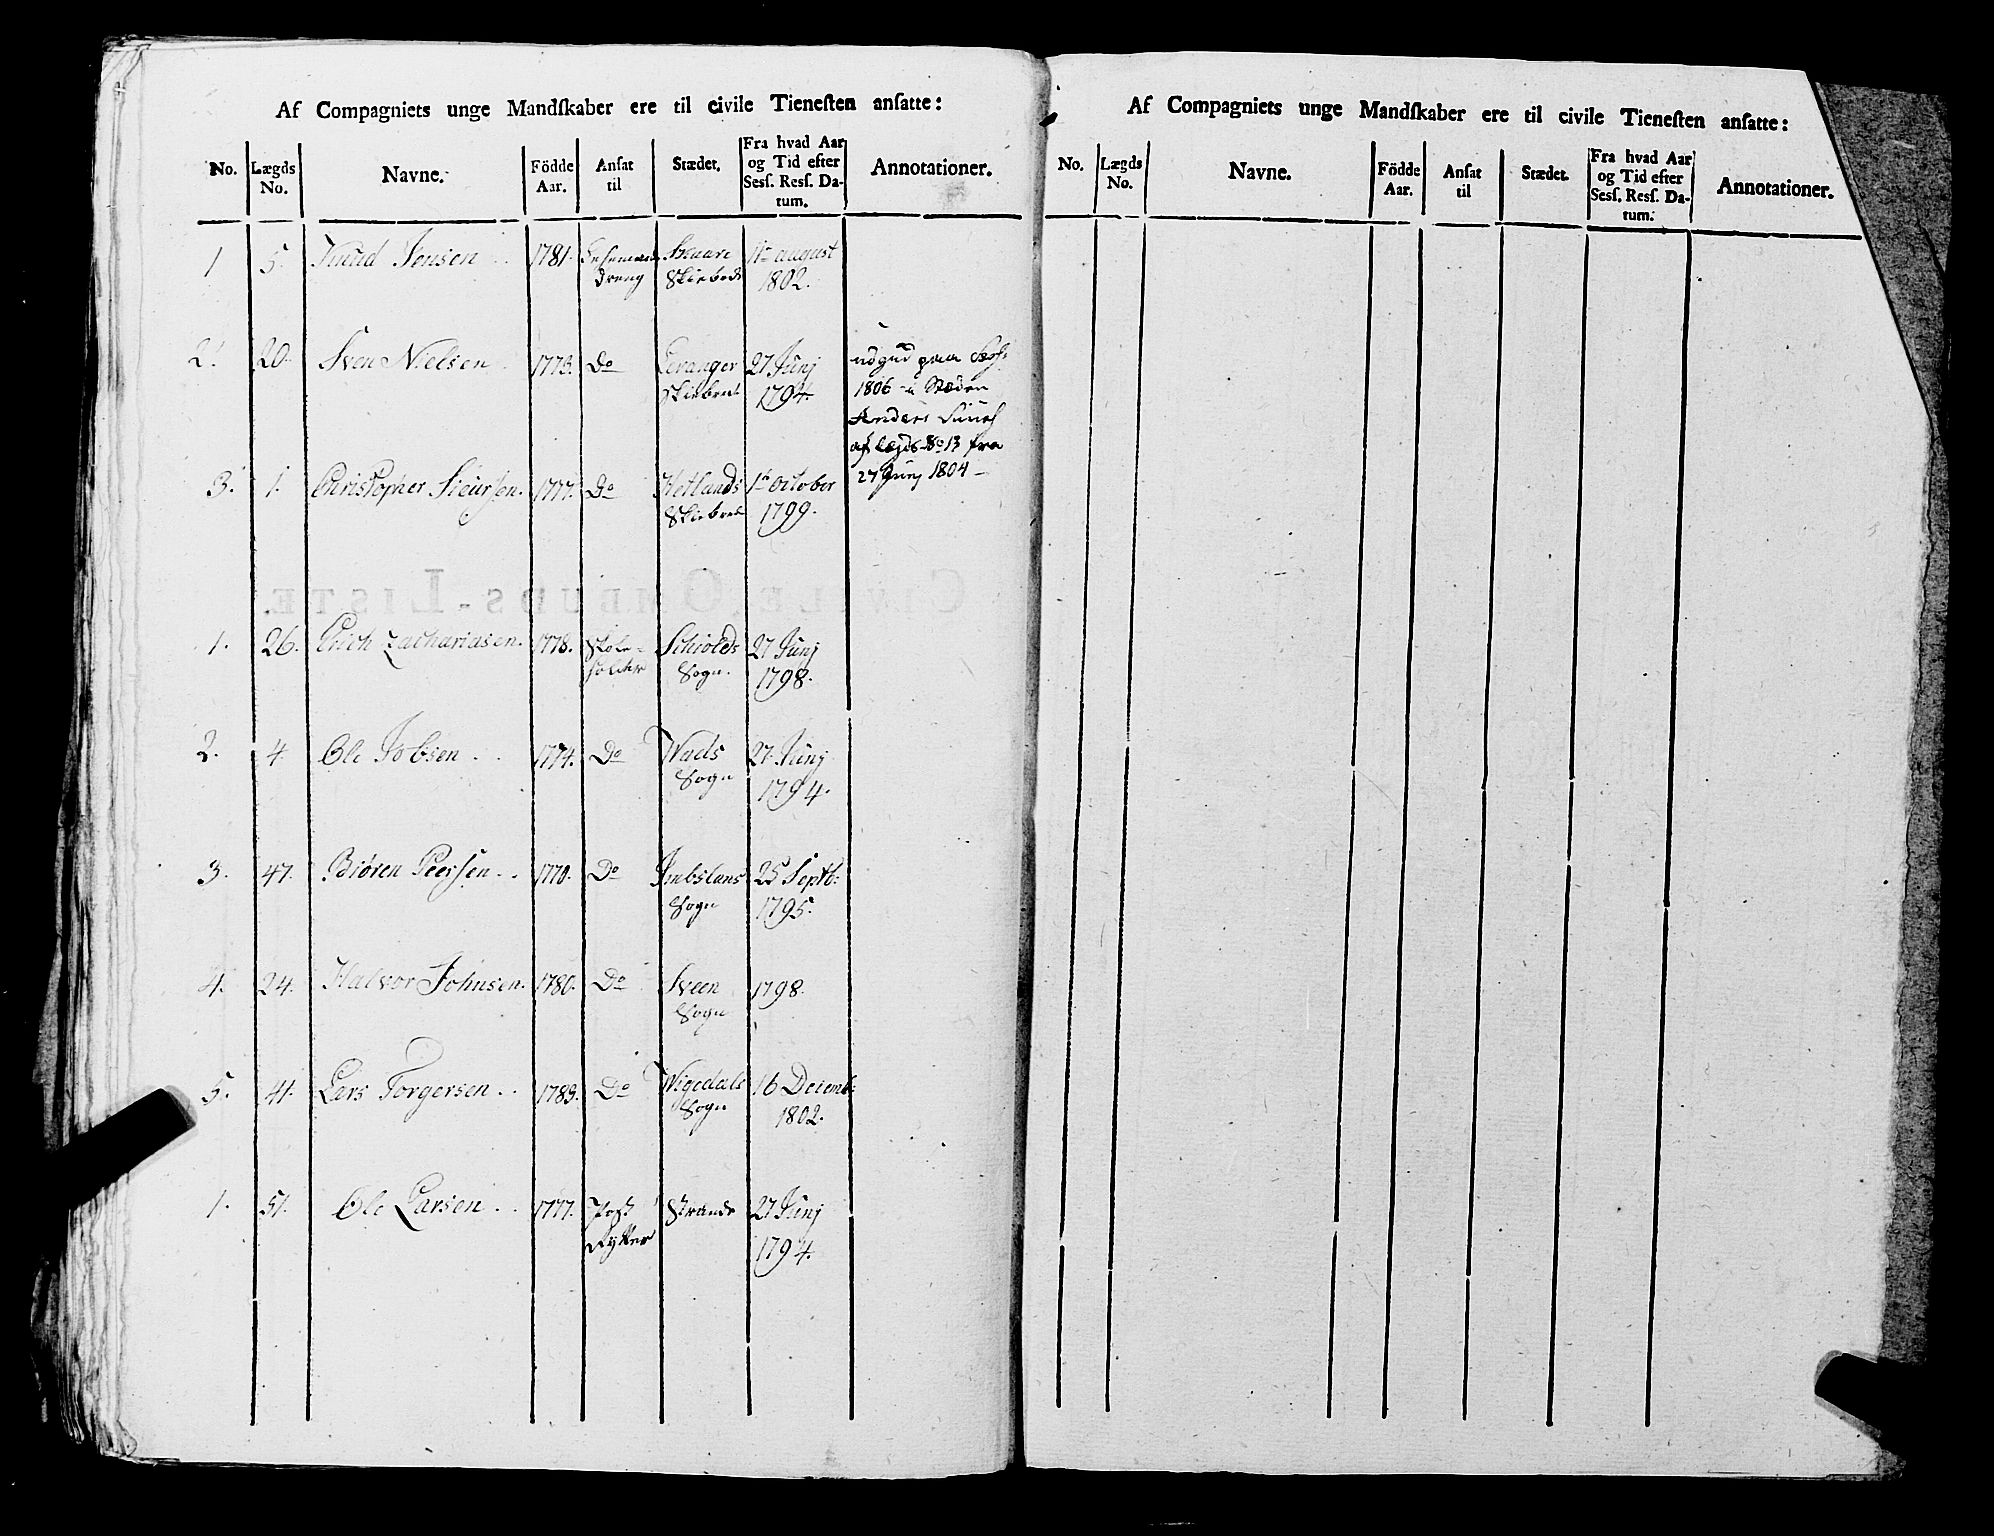 Af Compagniets unge Mandſkaber ere til civile Tieneſten anſatte:
No. Lægds No. Navne. Födde Aar. Anſat til Stædet. Fra hvad Aar og Tid efter Sesſ. Resſ. Datum. Annotationer.
1 5. Knud Jensen . . 1781. dreng Skiebred 11te august 1802.
2. 20. Sven Nielsen . 1773. Do Leranger Skiebred 27 Junj 1794. 1806 i Stæden Anders af Legds No 13 fra 27 Junj 1804 –
3. 1. Christopher Siursen. 1777. Do Hetlands Skiebred 1te October 1799.
CIVILE OMBUDS-LISTE.
1. 26. Erich Zachariasen. 1778. Skole-holder Schiolds Sogn. 27 Junj 1798.
2. 4 Ole Jobsen . . 1774. Do Wads Sogn 27 Junj 1794.
3. 47. Biören Peersen . . 1770. Do Imbslans Sogn 25 Septb: 1795.
4. 24. Halvor Johnsen. 1780. Do Sveen Sogn 1798.
5. 41. Lars Torgersen . . 1783. Do Wigedals Sogn 16 Decemb: 1802.
1. 51. Ole Larsen . . 1777. Post Rytter Strande 27 Junj 1794.
Af Compagniets unge Mandſkaber ere til civile Tieneſten anſatte:
No. Lægds No. Navne. Födde Aar. Anſat til Stædet. Fra hvad Aar og Tid efter Sesſ. Resſ. Datum. Annotationer.